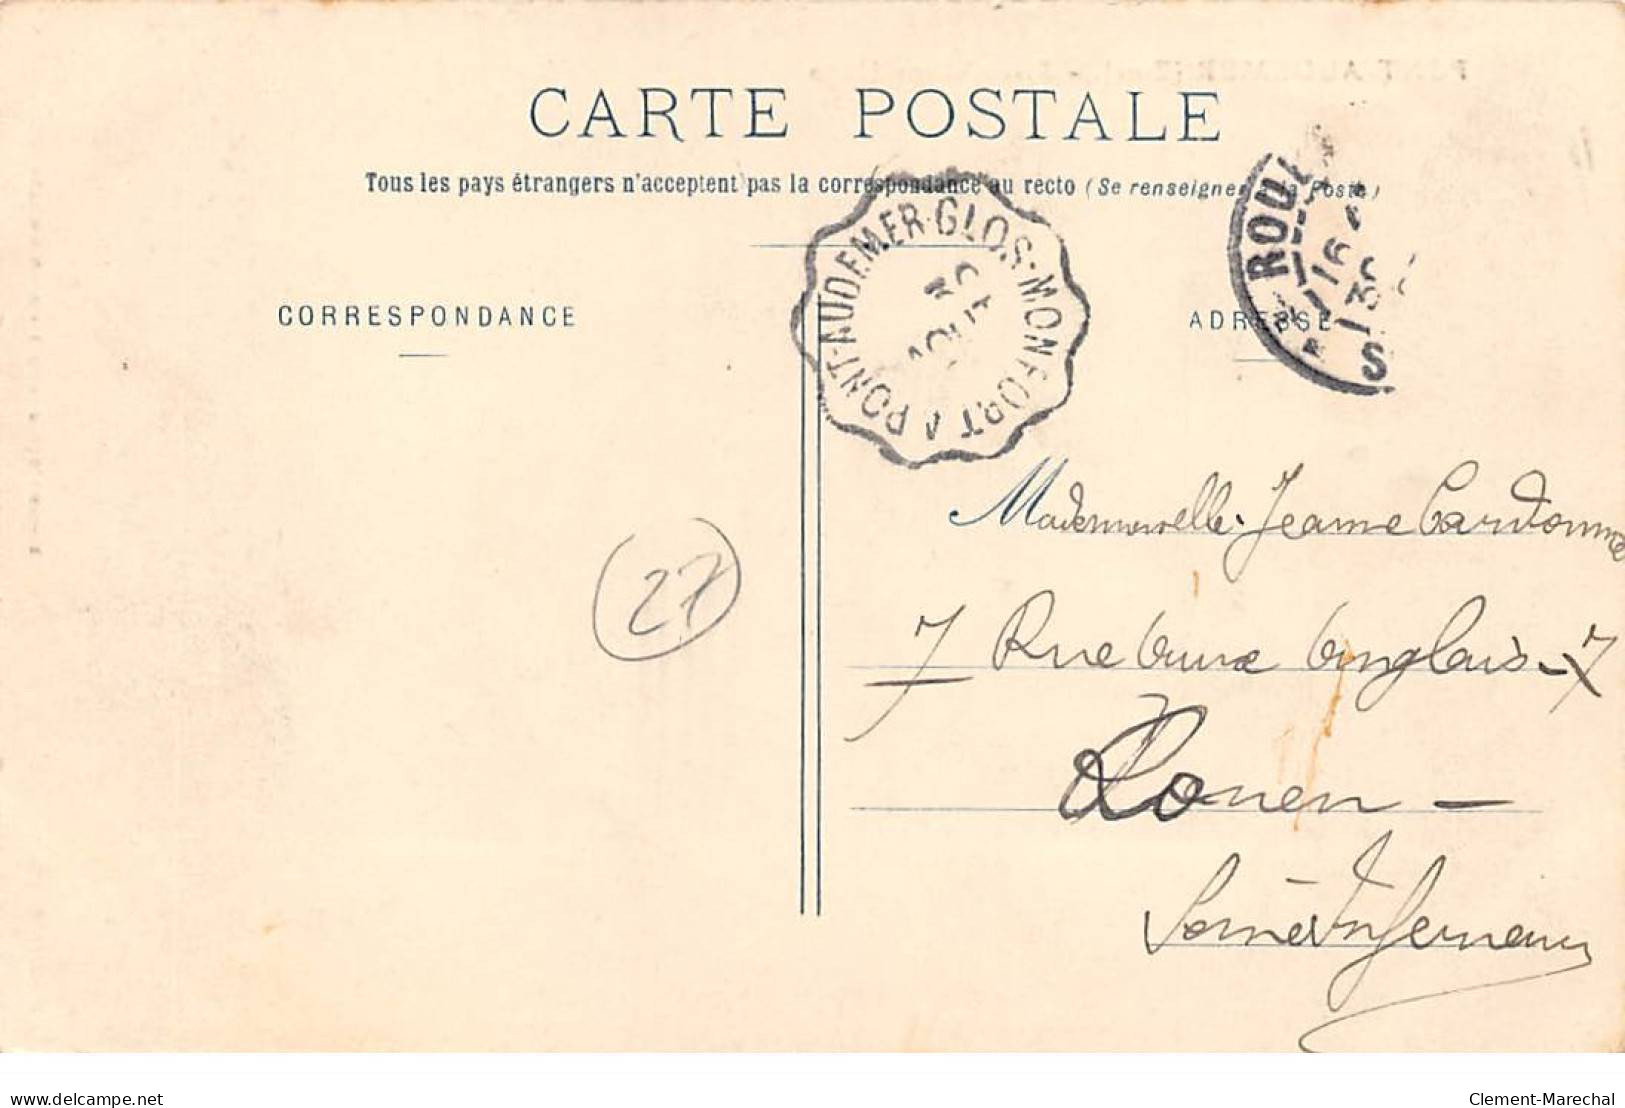 CARTE POSTALE
Tous les pays étrangers n'acceptent pas la correspondance au recto (Se renseigner à la Poste)
CORRESPONDANCE
ADRESSE
PONT-AUDEMER·GLOS-MONFORT A PONT-AUDEMER
30
AOUT
ROUEN
16
S
27
Mademoiselle Jeanne Cardonne
7 Rue aux Anglais - 7
Rouen -
Seine Inférieure
delcampe.net
Clement-Marechal